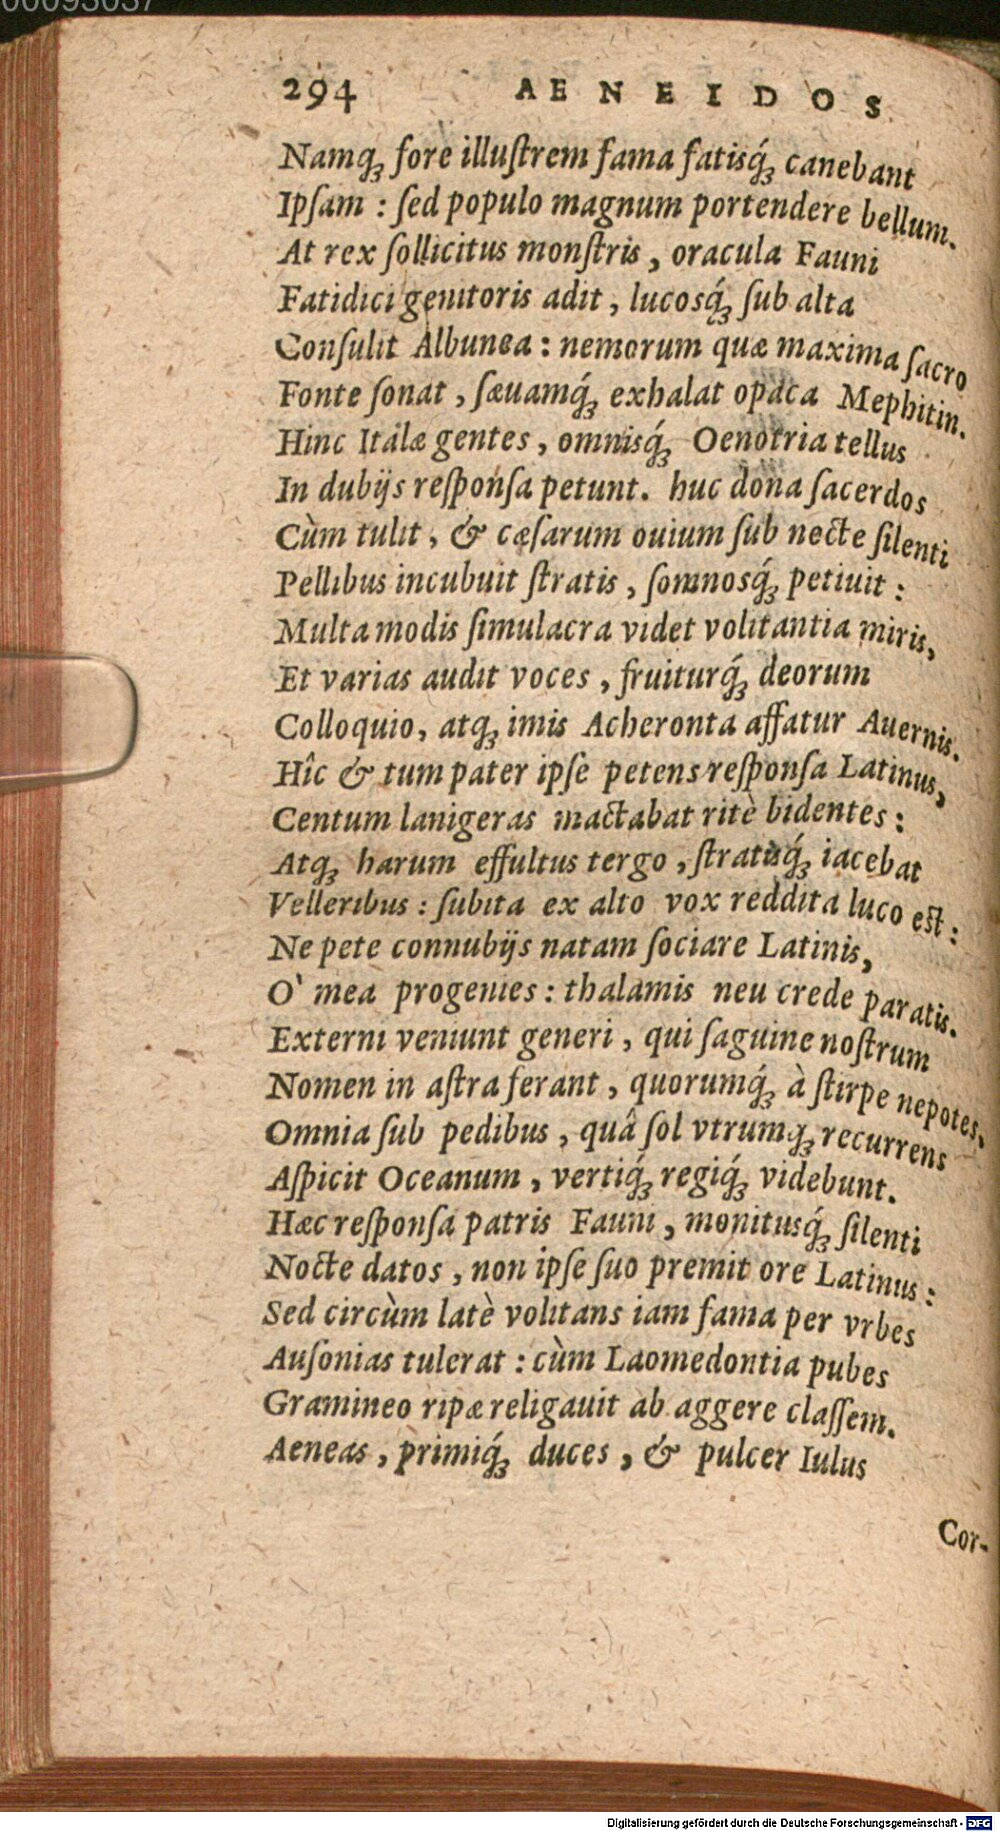 00093037
294 AENEIDOS
Namq́ꝫ fore illuſtrem fama fatisq́ꝫ canebant
Ipſam : ſed populo magnum portendere bellum.
At rex ſollicitus monſtris, oracula Fauni
Fatidici genitoris adit, lucosq́ꝫ ſub alta
Conſulit Albunea : nemorum quæ maxima ſacro
Fonte ſonat, ſæuamq́ꝫ exhalat opaca Mephitin.
Hinc Italæ gentes, omnisq́ꝫ Oenotria tellus
In dubijs reſponſa petunt. huc dona ſacerdos
Cùm tulit, & cæſarum ouium ſub necte ſilenti
Pellibus incubuit ſtratis, ſomnosq́ꝫ petiuit :
Multa modis ſimulacra videt volitantia miris,
Et varias audit voces, fruiturq́ꝫ deorum
Colloquio, atqꝫ imis Acheronta affatur Auernis.
Hîc & tum pater ipſe petens reſponſa Latinus,
Centum lanigeras mactabat ritè bidentes :
Atqꝫ harum effultus tergo, ſtratisq́ꝫ iacebat
Velleribus : ſubita ex alto vox reddita luco eſt :
Ne pete connubijs natam ſociare Latinis,
O' mea progenies : thalamis neu crede paratis.
Externi veniunt generi, qui ſaguine noſtrum
Nomen in aſtra ferant, quorumq́ꝫ à ſtirpe nepotes.
Omnia ſub pedibus, quâ ſol vtrumqꝫ recurrens
Aſpicit Oceanum, vertiq́ꝫ regiq́ꝫ videbunt.
Hæc reſponſa patris Fauni, monitusq́ꝫ ſilenti
Nocte datos, non ipſe ſuo premit ore Latinus :
Sed circùm latè volitans iam fama per vrbes
Auſonias tulerat : cùm Laomedontia pubes
Gramineo ripæ religauit ab aggere claſſem.
Aeneas, primiq́ꝫ duces, & pulcer Iulus
Cor-
Digitalisierung gefördert durch die Deutsche Forschungsgemeinschaft - DFG